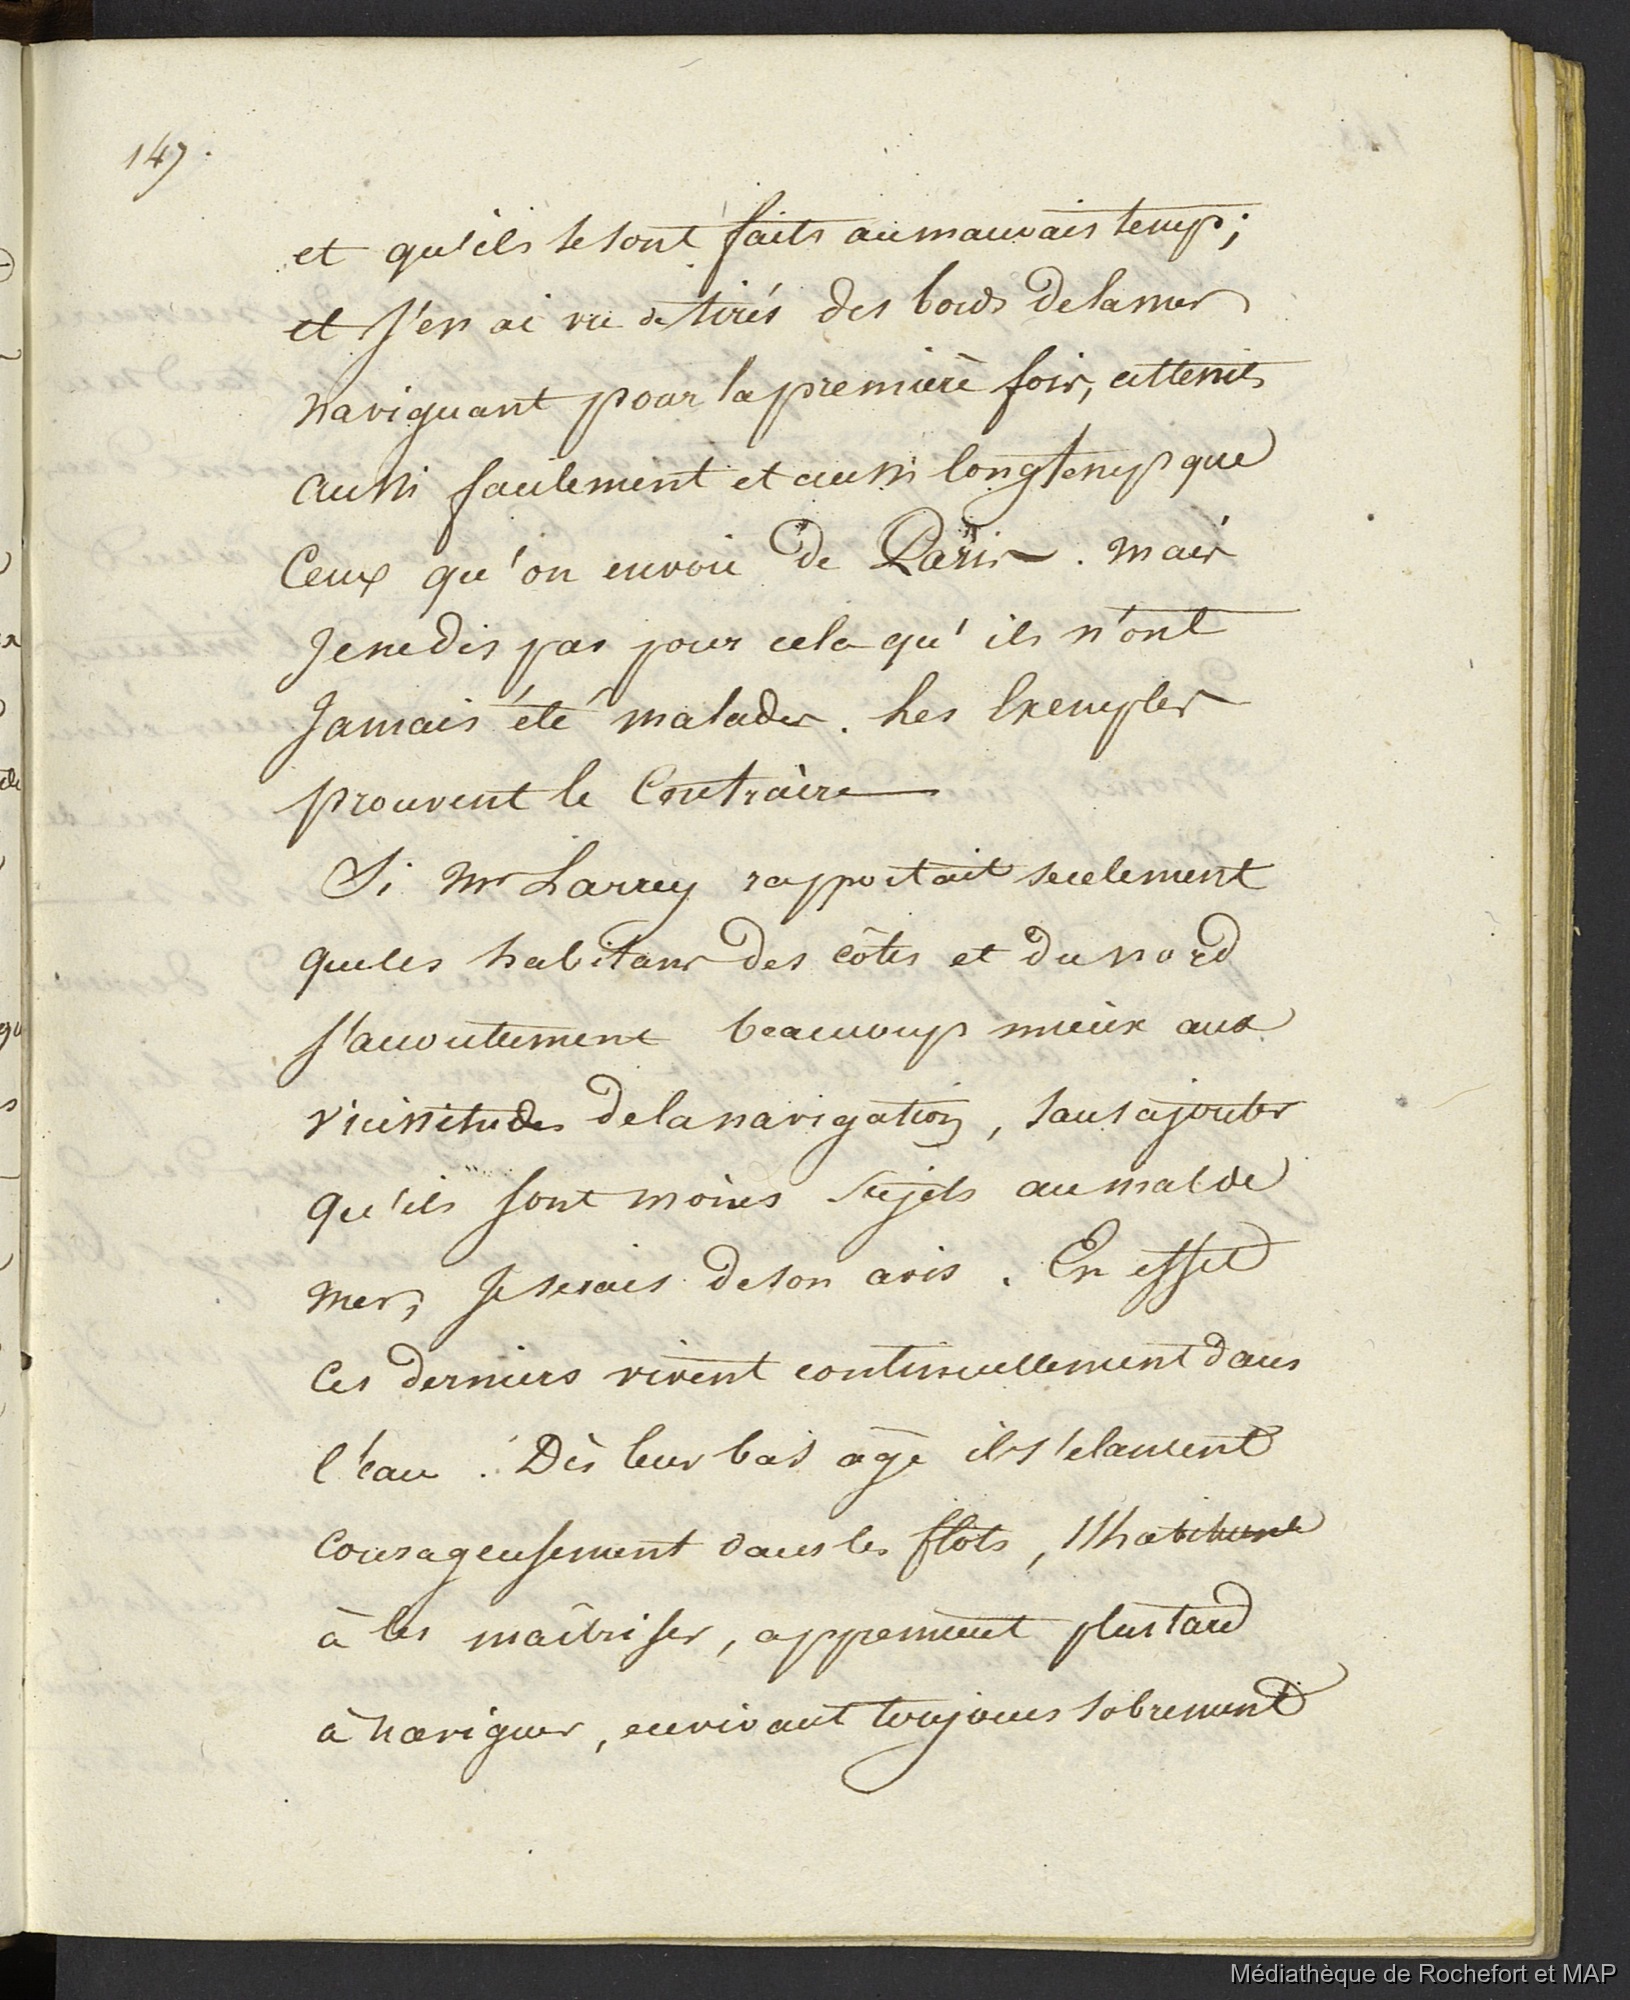 147.
et qu'ils se sont faits au mauvais temps;
et j'en ai vu de tirés des bords de la mer
naviguant pour la première fois, atteints
aussi facilement et aussi longtemps que
ceux qu'on envoie de Paris. mais
je ne dis pas pour cela qu'ils n'ont
jamais été malades. Les Exemples
prouvent le Contraire
Si Mr Larrey rapportait seulement
que les habitans des côtes et du nord
s'accoutument beaucoup mieux aux
vicissitudes de la navigation, sans ajouter
qu'ils sont moins sujets au mal de
mer, Je serais de son avis. En effet
ces derniers vivent continuellement dans
l'eau. Dès leur bas age ils s'elancent
courageusement dans les flots, s'habituent
à les maîtriser, apprennent plus tard
à naviguer, en vivant toujours sobrement
Médiathèque de Rochefort et MAP